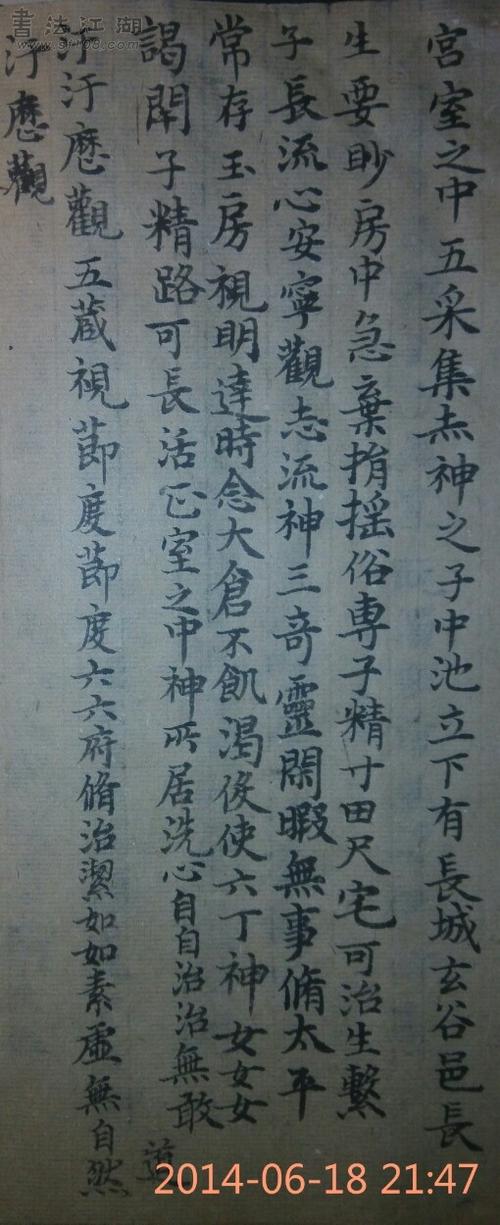 宮室之中五采集赤神之子中池立下有長城玄谷邑長
生要眇房中急棄捐搖俗専子精寸田尺宅可治生繫
子長流心安寧觀志流神三奇靈閑暇無事脩太平
常存玉房視明達時念大倉不飢渴侯使六丁神女女女
謁閉子精路可長活正室之中神所居洗心自自治治無敢
汙汙歷觀五藏視節度節度六六府脩治潔如如素虛無自然
道
汙歷觀
書法江湖
2014-06-18 21:47